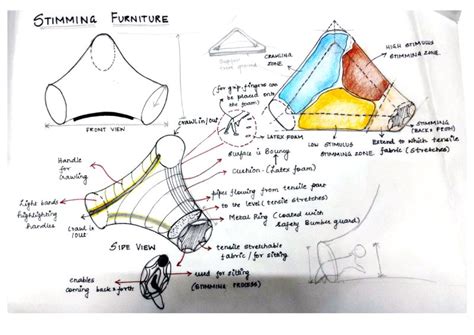 STIMMING FURNITURE
FRONT VIEW
crawl in/out
(for grip, fingers can
be placed onto
the foam)
CRAWLING
ZONE
HIGH STIMULUS
STIMMING ZONE
LATEX FOAM
LOW STIMULUS
STIMMING ZONE
STIMMING
(BACK & FROM)
Extend to which tensile
fabric (stretches)
Handle
for
crawling
Light bands
highlighting
handles
crawl in
/out
SIDE VIEW
Surface is Bouncy
Cushion - (Latex foam)
pipes flowing from tensile part
to the level (tensile stretches)
Metal Ring (coated with
safety Bumber guard)
tensile stretchable
fabric / for sitting
enables
coming back & forth
used for sitting
(STIMMING PROCESS)